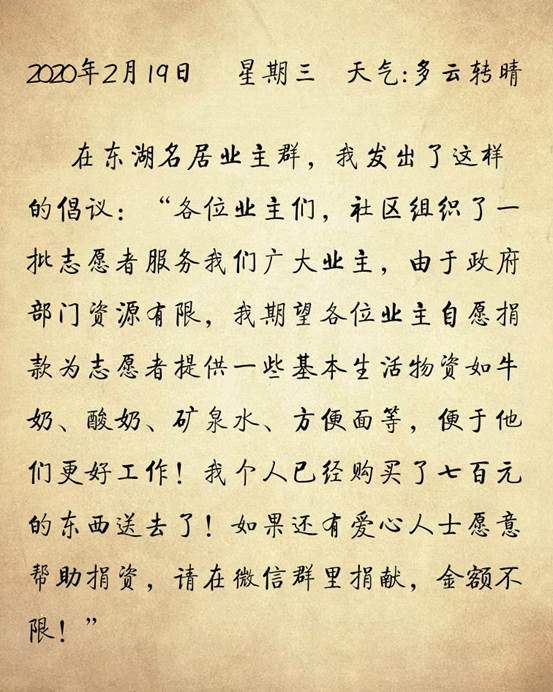 2020年2月19日 星期三 天气:多云转晴
在东湖名居业主群，我发出了这样
的倡议：“各位业主们，社区组织了一
批志愿者服务我们广大业主，由于政府
部门资源有限，我期望各位业主自愿捐
款为志愿者提供一些基本生活物资如牛
奶、酸奶、矿泉水、方便面等，便于他
们更好工作！我个人已经购买了七百元
的东西送去了！如果还有爱心人士愿意
帮助捐资，请在微信群里捐献，金额不
限！”